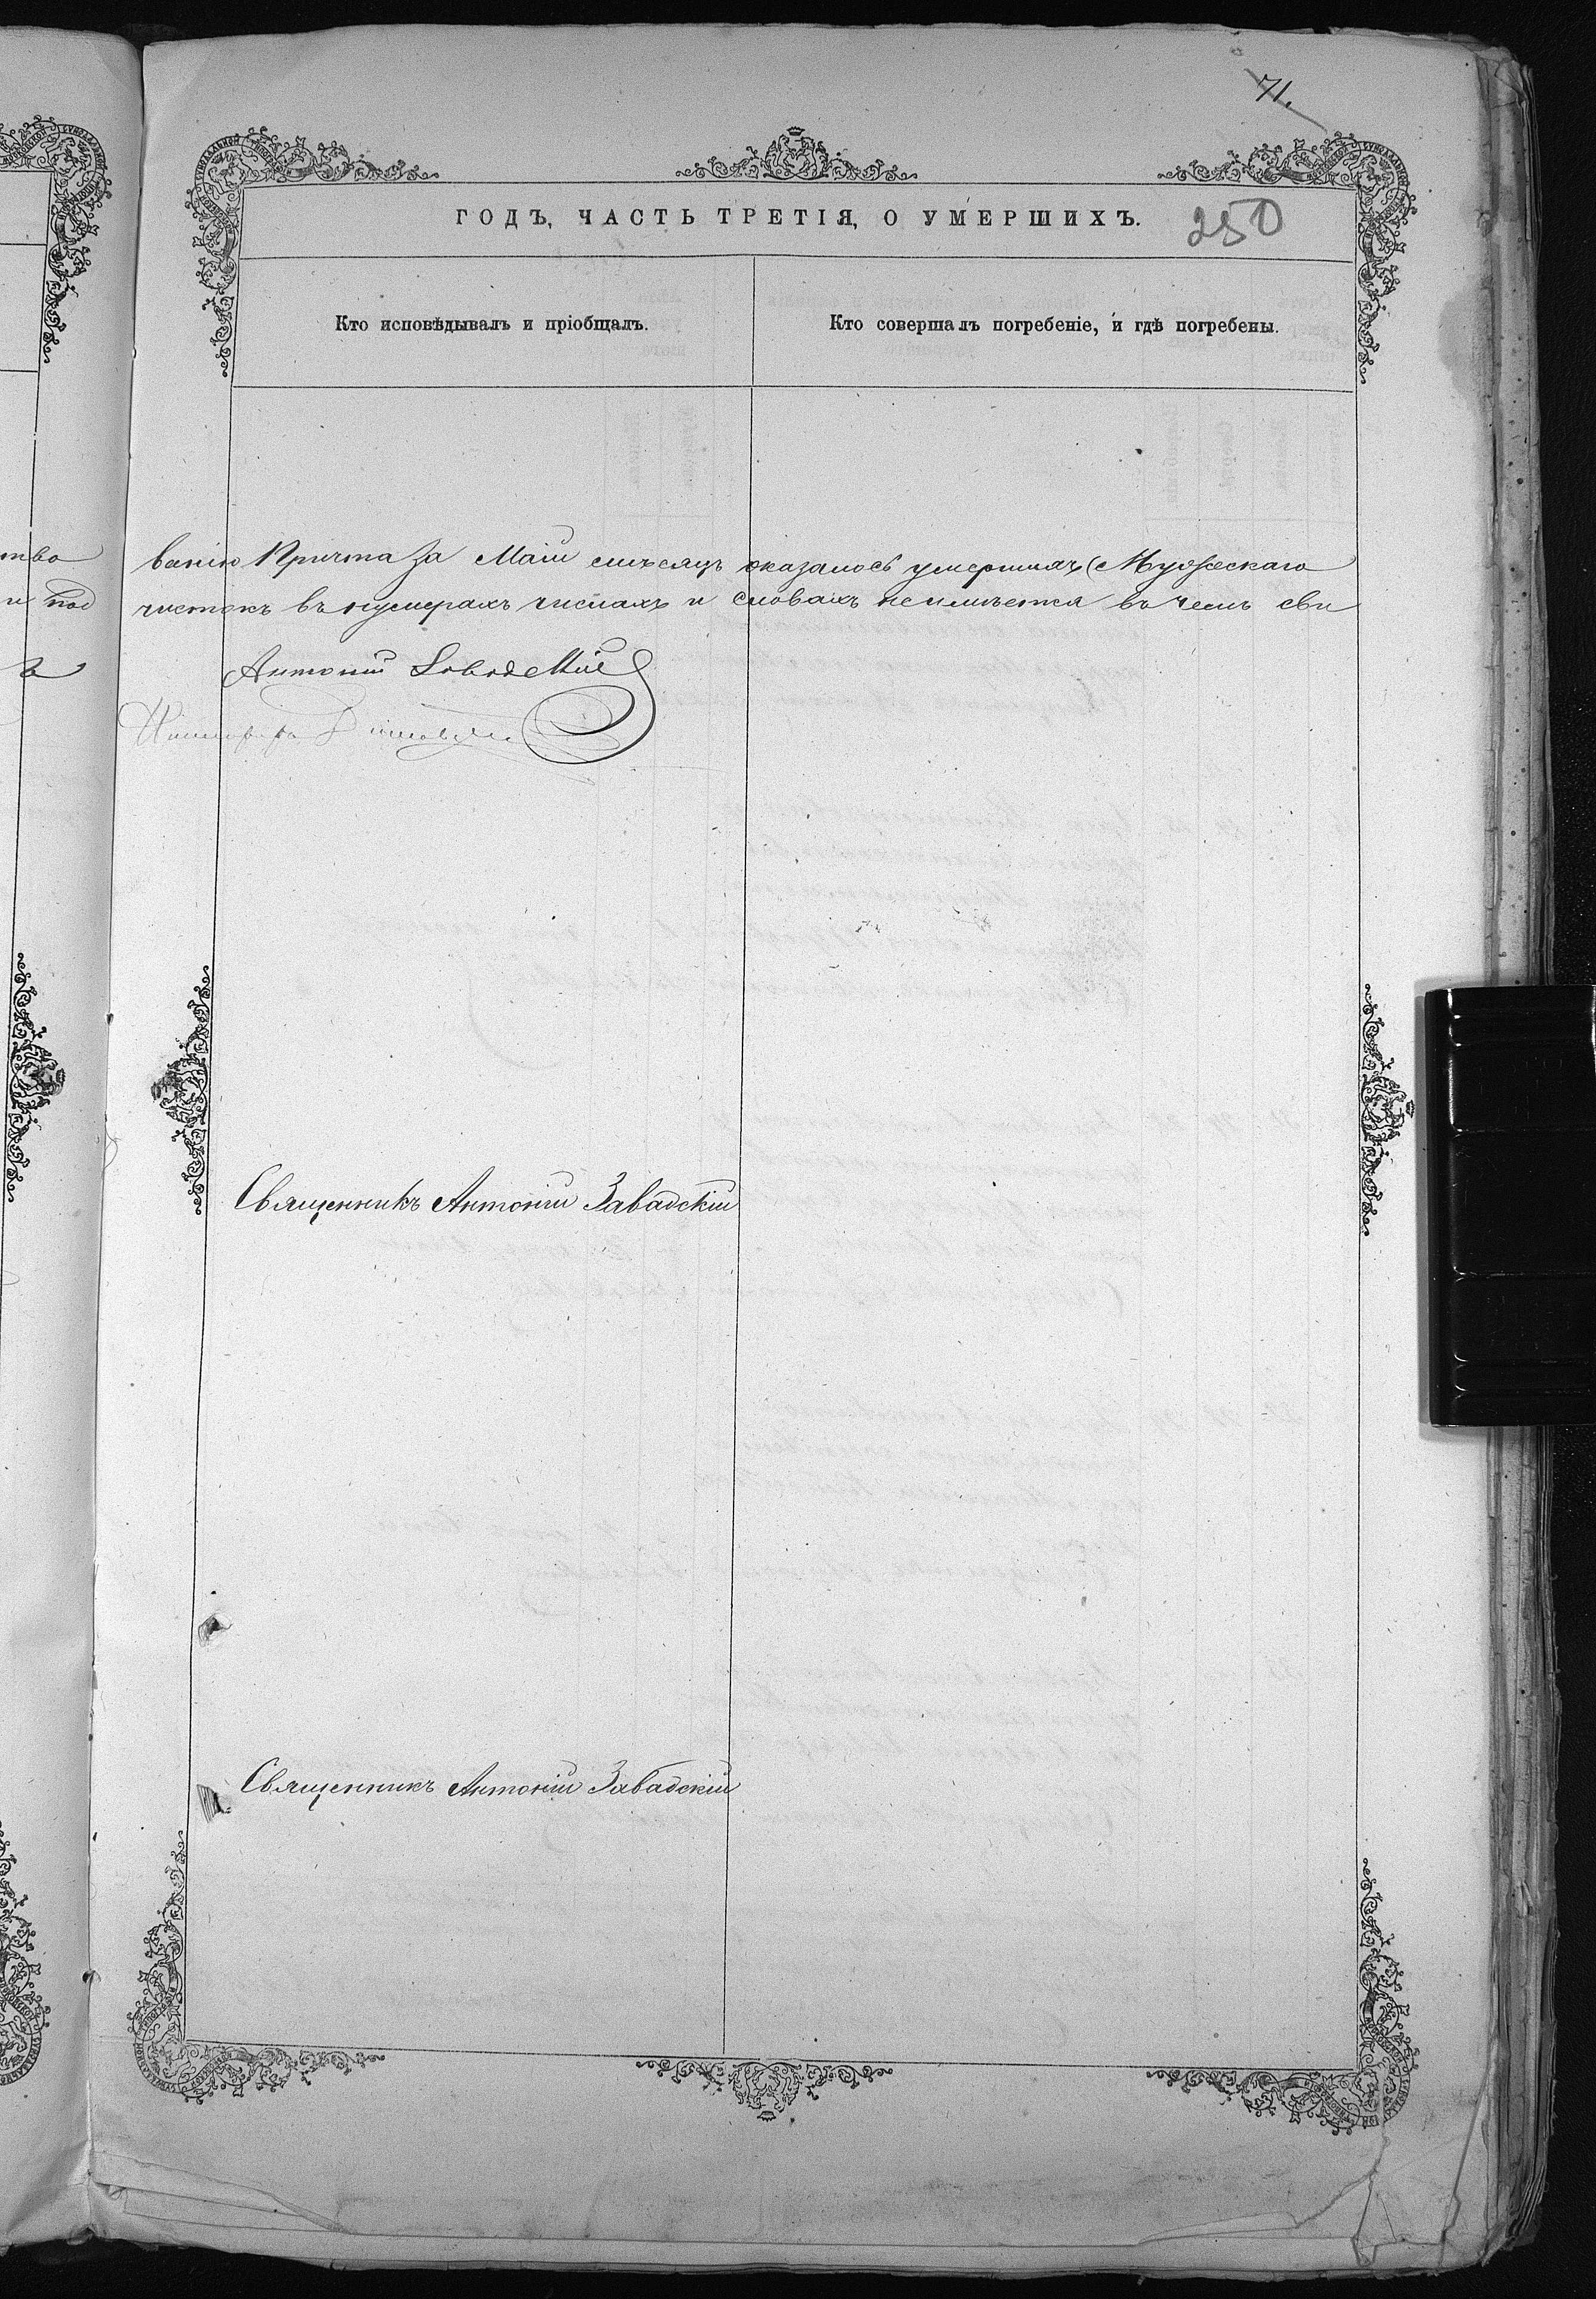 71.
ГОДЪ, ЧАСТЬ ТРЕТІЯ, О УМЕРШИХЪ. 250
Кто исповѣдывалъ и пріобщалъ.
Кто совершалъ погребеніе, и гдѣ погребены.
тво
и под
ванію Причта за Маій мѣсяцъ оказалось умершихъ (Мужескаго
чистокъ въ нумерахъ числахъ и словахъ неимѣется въ чемъ сви
Антоній
Священникъ Антоній Завадскій
Священникъ Антоній Завадскій